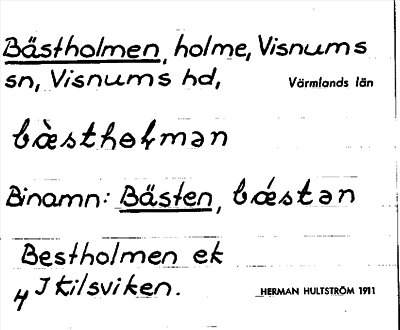 Bästholmen, holme, Visnums
sn, Visnums hd, Värmlands län
bæ̀sthoɫmən
Binamn: Bästen, bǽstən
Bestholmen ek
I kilsviken.
HERMAN HULTSTRÖM 1911